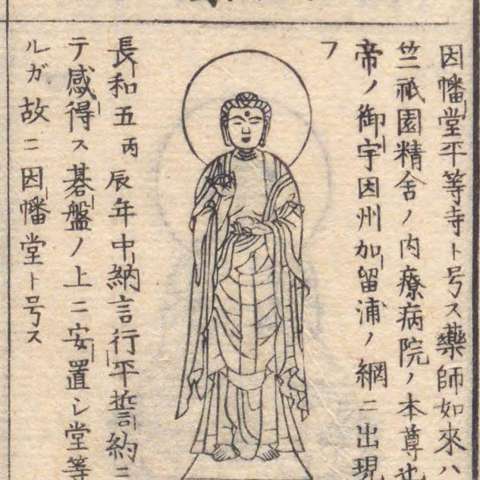 因幡堂平等寺ト号ス藥師如來ハ
竺祇園精舎ノ内療病院ノ本尊也
帝ノ御宇因州加留浦ノ網ニ出現
フ
長和五丙辰年中納言行平誓約ニ
テ感得ス碁盤ノ上ニ安置シ堂等
ルガ故ニ因幡堂ト号ス